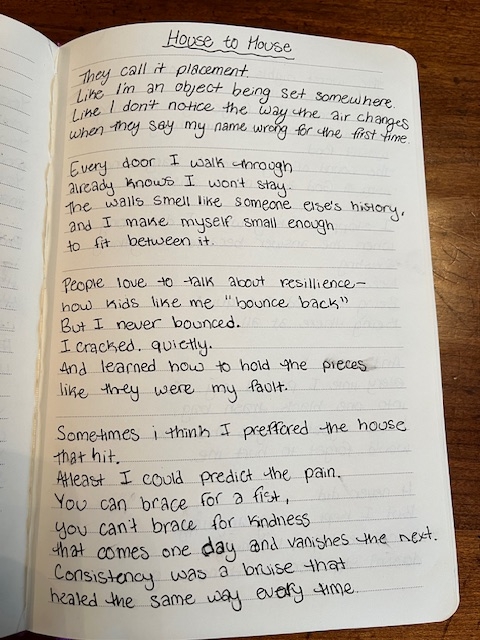 House to House
They call it placement.
Like I'm an object being set somewhere.
Like I don't notice the way the air changes
when they say my name wrong for the first time.
Every door I walk through
already knows I won't stay.
The walls smell like someone else's history,
and I make myself small enough
to fit between it.
People love to talk about resillience–
how kids like me "bounce back"
But I never bounced.
I cracked. quietly.
And learned how to hold the pieces
like they were my fault.
Sometimes i think I preffored the house
that hit.
Atleast I could predict the pain.
You can brace for a fist,
you can't brace for kindness
that comes one day and vanishes the next.
Consistency was a bruise that
healed the same way every time.